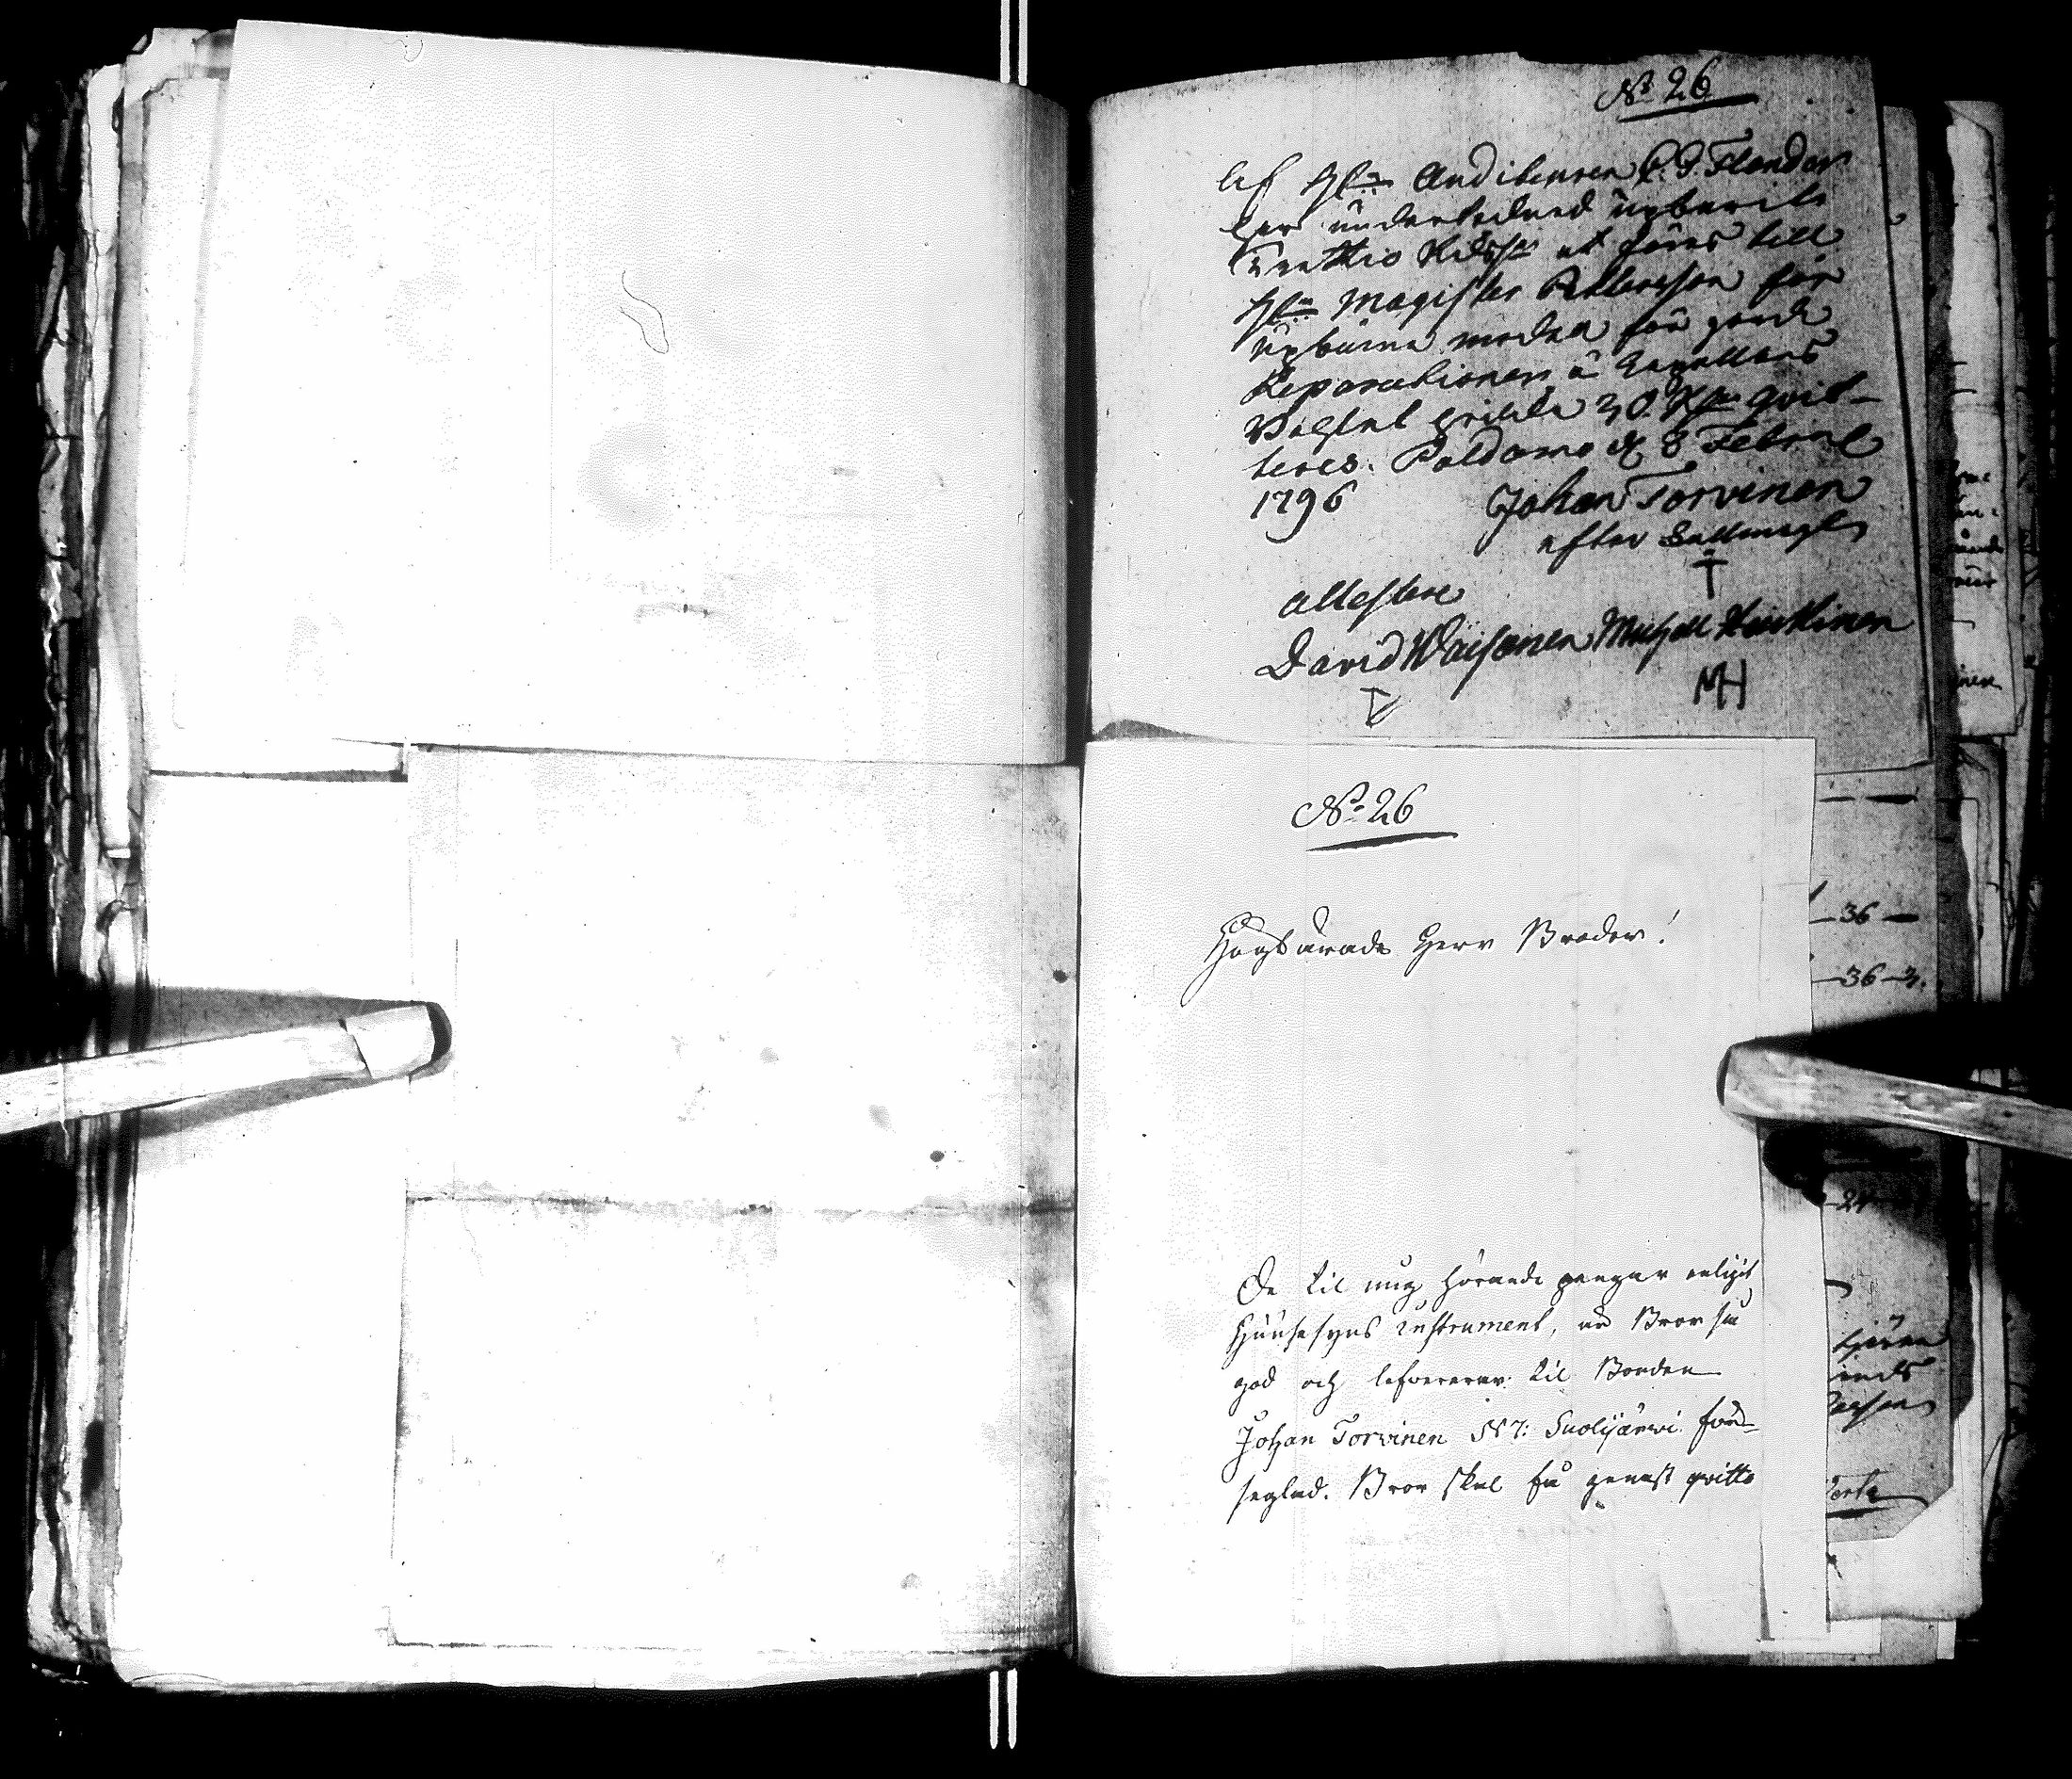 No 26
af H:r Auditeuren C. J. Flander
har undertecknad upburit
Trettio Rdr at föras till
H:r Magister Pettersson för
upburne medel för giorde
Reparationen å Capellans
Bohlet hvilka 30. Rdr qvit-
teres. Paldamo d. 8 Februarii
1796 Johan Torvinen
efter Fullmagt
attestere
David Wäisänen Michell Heikkinen
MH
No 26
Högtärade Herr Broder!
De til mig hörande pengar enligit
Huusesyns instrument, är Bror så
god och lefvererar til Bonden
Johan Torvinen No 7: Suolijärwi för-
seglad. Bror skal få genast qvitto
36
36
24